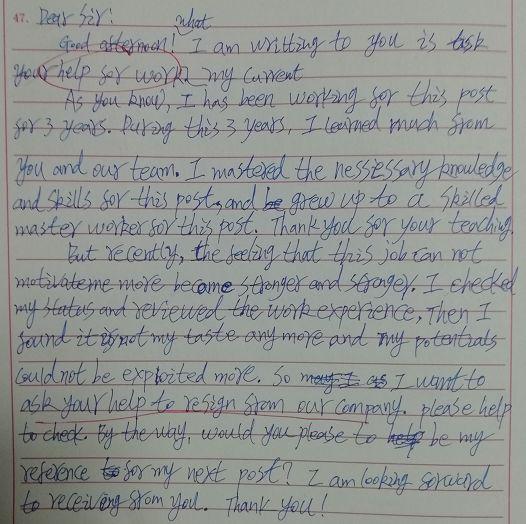 47. Dear Sir:
what
Good afternoon! I am writting to you is task
your help for work. my current
As you know, I has been working for this post
for 3 years. During this 3 years, I learned much from
you and our team. I mastered the nessiessary knowledge
and skills for this post, and be grew up to a skilled
master worker for this post. Thank you for your teaching.
But recently, the feeling that this job can not
motivate me more become stronger and stronger. I checked
my status and reviewed the work experience, Then I
found it is not my taste any more and my potentials
could not be exploited more. So may I as I want to
ask your help to resign from our company. please help
to check. By the way, would you please to help be my
reference to for my next post? I am looking forward
to receiving from you. Thank you!